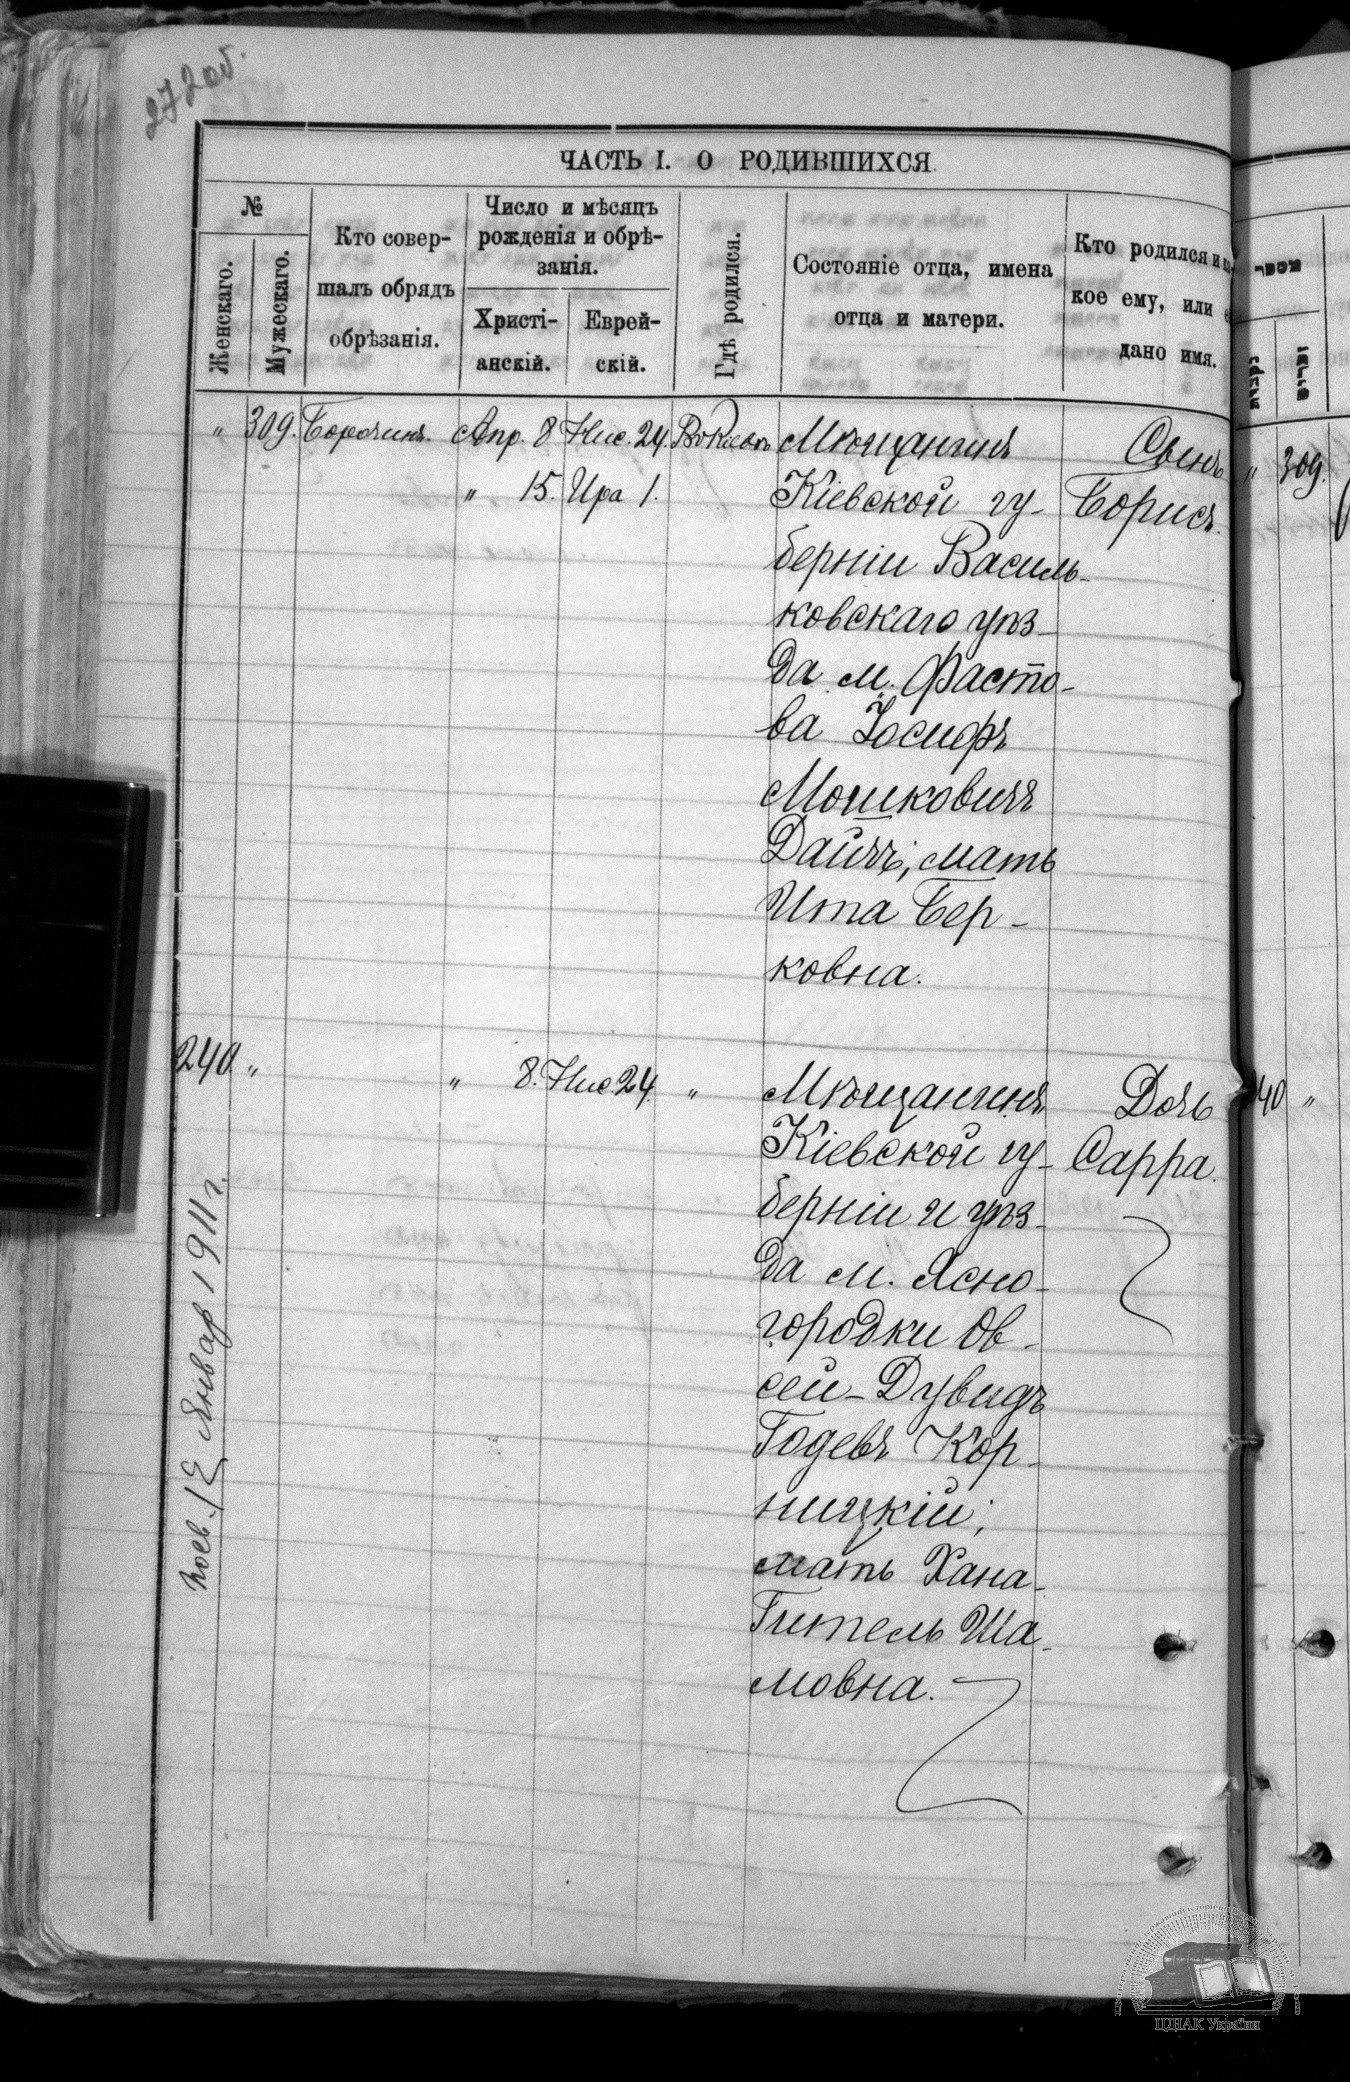 272 об.
ЧАСТЬ I. О РОДИВШИХСЯ.
№
Женскаго.
Мужескаго.
Кто совер-
шалъ обрядъ
обрѣзанія.
Число и мѣсяцъ
рожденія и обрѣ-
занія.
Христі-
анскій.
Еврей-
скій.
Гдѣ родился.
Состояніе отца, имена
отца и матери.
Кто родился и ка-
кое ему, или е
дано имя.
" 309. Апр. 8 Нис. 24. Въ Кіевѣ
" 15. Ира 1.
Мѣщанинъ
Кіевской гу-
берніи Василь-
ковскаго уѣз-
да м. Фасто-
ва Іосифъ
Мошковичъ
Дайчъ, мать
Ита Бер-
ковна.
Сынъ
Борисъ.
" 309.
240 "
" 8. Нис 24. "
Мѣщанинъ
Кіевской гу-
берніи и уѣз-
да м. Ясно-
городки Ов-
сей-Дувидъ
Годевъ Кор-
ницкій;
мать Хана-
Гитель Ша-
мовна.
Дочь
Сарра.
240 "
12 Январ 1911 г.
ЦДІАК України